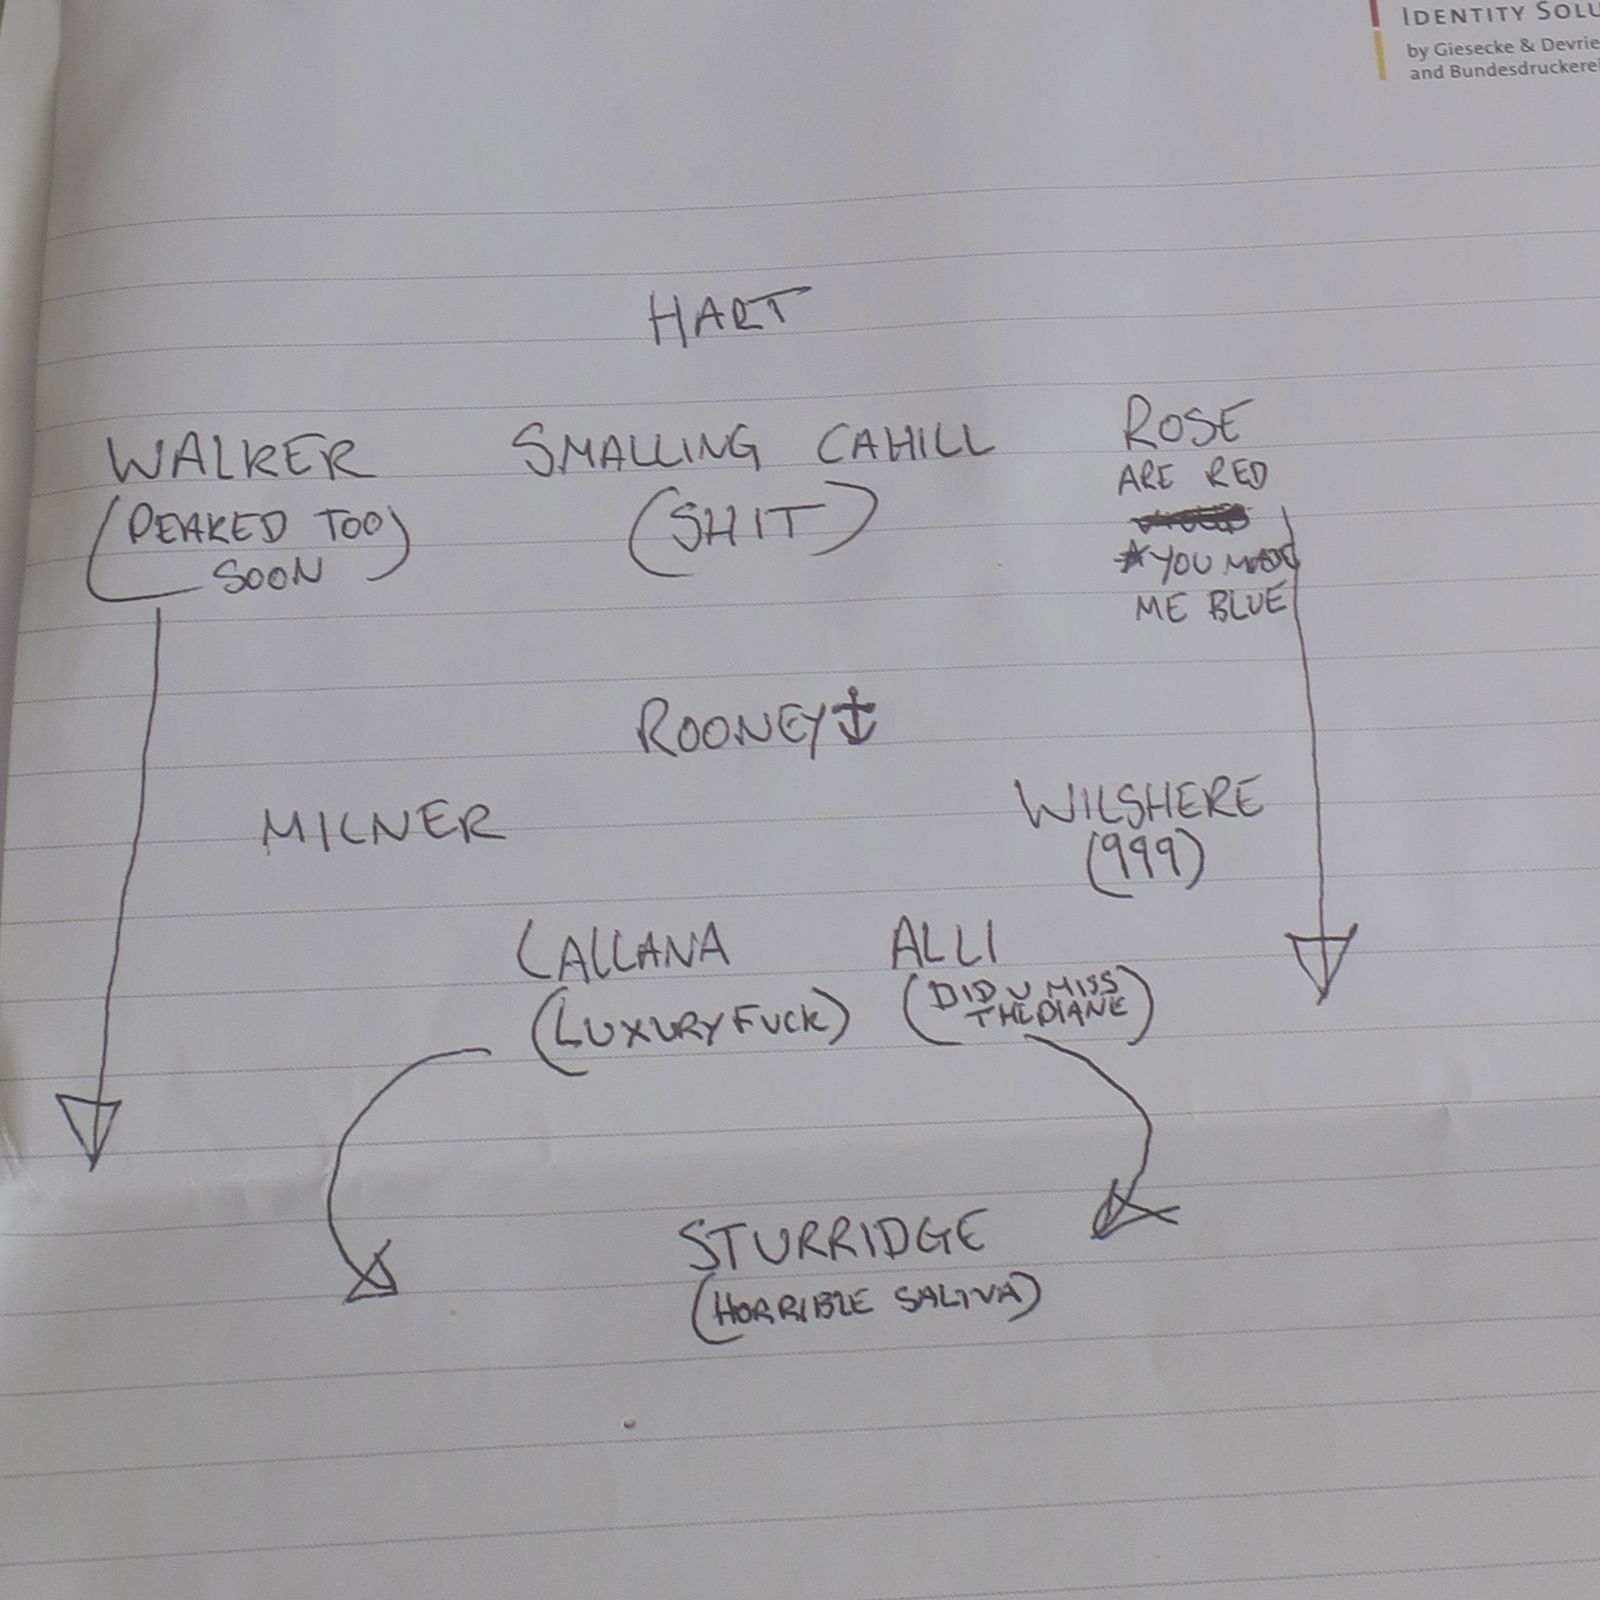 IDENTITY SOLU
by Giesecke & Devrie
and Bundesdruckerei
HART
WALKER SMALLING CAHILL ROSE
(PEAKED TOO SOON)
(SHIT)
ARE RED
YOU MADE
ME BLUE
ROONEY
MILNER
WILSHERE
(999)
LALLANA ALLI
(LUXURY FUCK)
(DID U MISS
THE PLANE)
STURRIDGE
(HORRIBLE SALIVA)